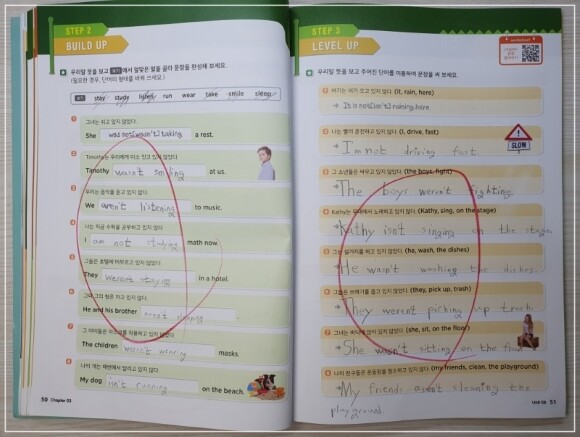 STEP 2
BUILD UP
우리말 뜻을 보고 보기에서 알맞은 말을 골라 문장을 완성해 보세요.
(필요한 경우, 단어의 형태를 바꿔 쓰세요.)
보기 stay study listen run wear take smile sleep
1 그녀는 쉬고 있지 않았다.
She was not[wasn't] taking a rest.
2 Timothy는 우리에게 미소 짓고 있지 않았다.
Timothy wasn't smiling at us.
3 우리는 음악을 듣고 있지 않다.
We aren't listening to music.
4 나는 지금 수학을 공부하고 있지 않다.
I am not studying math now.
5 그들은 호텔에 머무르고 있지 않았다.
They weren't staying in a hotel.
6 그와 그의 형은 자고 있지 않다.
He and his brother aren't sleeping
7 그 아이들은 마스크를 착용하고 있지 않았다.
The children weren't wearing masks.
8 나의 개는 해변에서 달리고 있지 않다.
My dog isn't running on the beach.
50 Chapter 03
STEP 3
LEVEL UP
우리말 뜻을 보고 주어진 단어를 이용하여 문장을 써 보세요.
1 여기는 비가 오고 있지 않다. (it, rain, here)
→ It is not[isn't] raining here.
2 나는 빨리 운전하고 있지 않다. (I, drive, fast)
→ I'm not driving fast.
SLOW
3 그 소년들은 싸우고 있지 않았다. (the boys, fight)
→ The boys weren't fighting.
4 Kathy는 무대에서 노래하고 있지 않다. (Kathy, sing, on the stage)
→ Kathy isn't singing on the stage.
5 그는 설거지를 하고 있지 않았다. (he, wash, the dishes)
→ He wasn't washing the dishes.
6 그들은 쓰레기를 줍고 있지 않았다. (they, pick up, trash)
→ They weren't picking up trash.
7 그녀는 바닥에 앉아 있지 않았다. (she, sit, on the floor)
→ She wasn't sitting on the floor.
8 나의 친구들은 운동장을 청소하고 있지 않다. (my friends, clean, the playground)
→ My friends aren't cleaning the
playground.
Unit 08 51